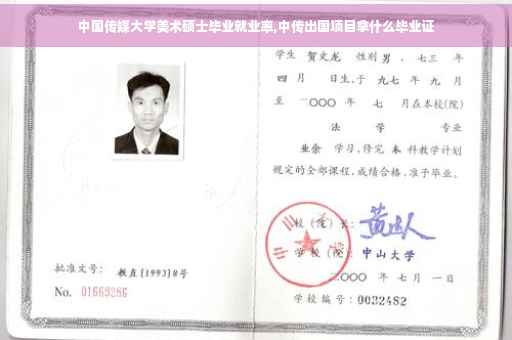 中国传媒大学美术硕士毕业就业率,中传出国项目拿什么毕业证
学生 贺文龙 性别 男 、七三 年
四 月 日生,于 九七 年 九 月
至 二〇〇〇 年 七 月在本校(院)
法 学 专业
业余 学习,修完 本 科教学计划
规定的全部课程,成绩合格,准予毕业。
校(院)长:
学 校(院): 中山大学
二〇〇〇 年 七 月 一 日
学校编号:0032482
批准文号: 教直[1993]8号
No. 01669286